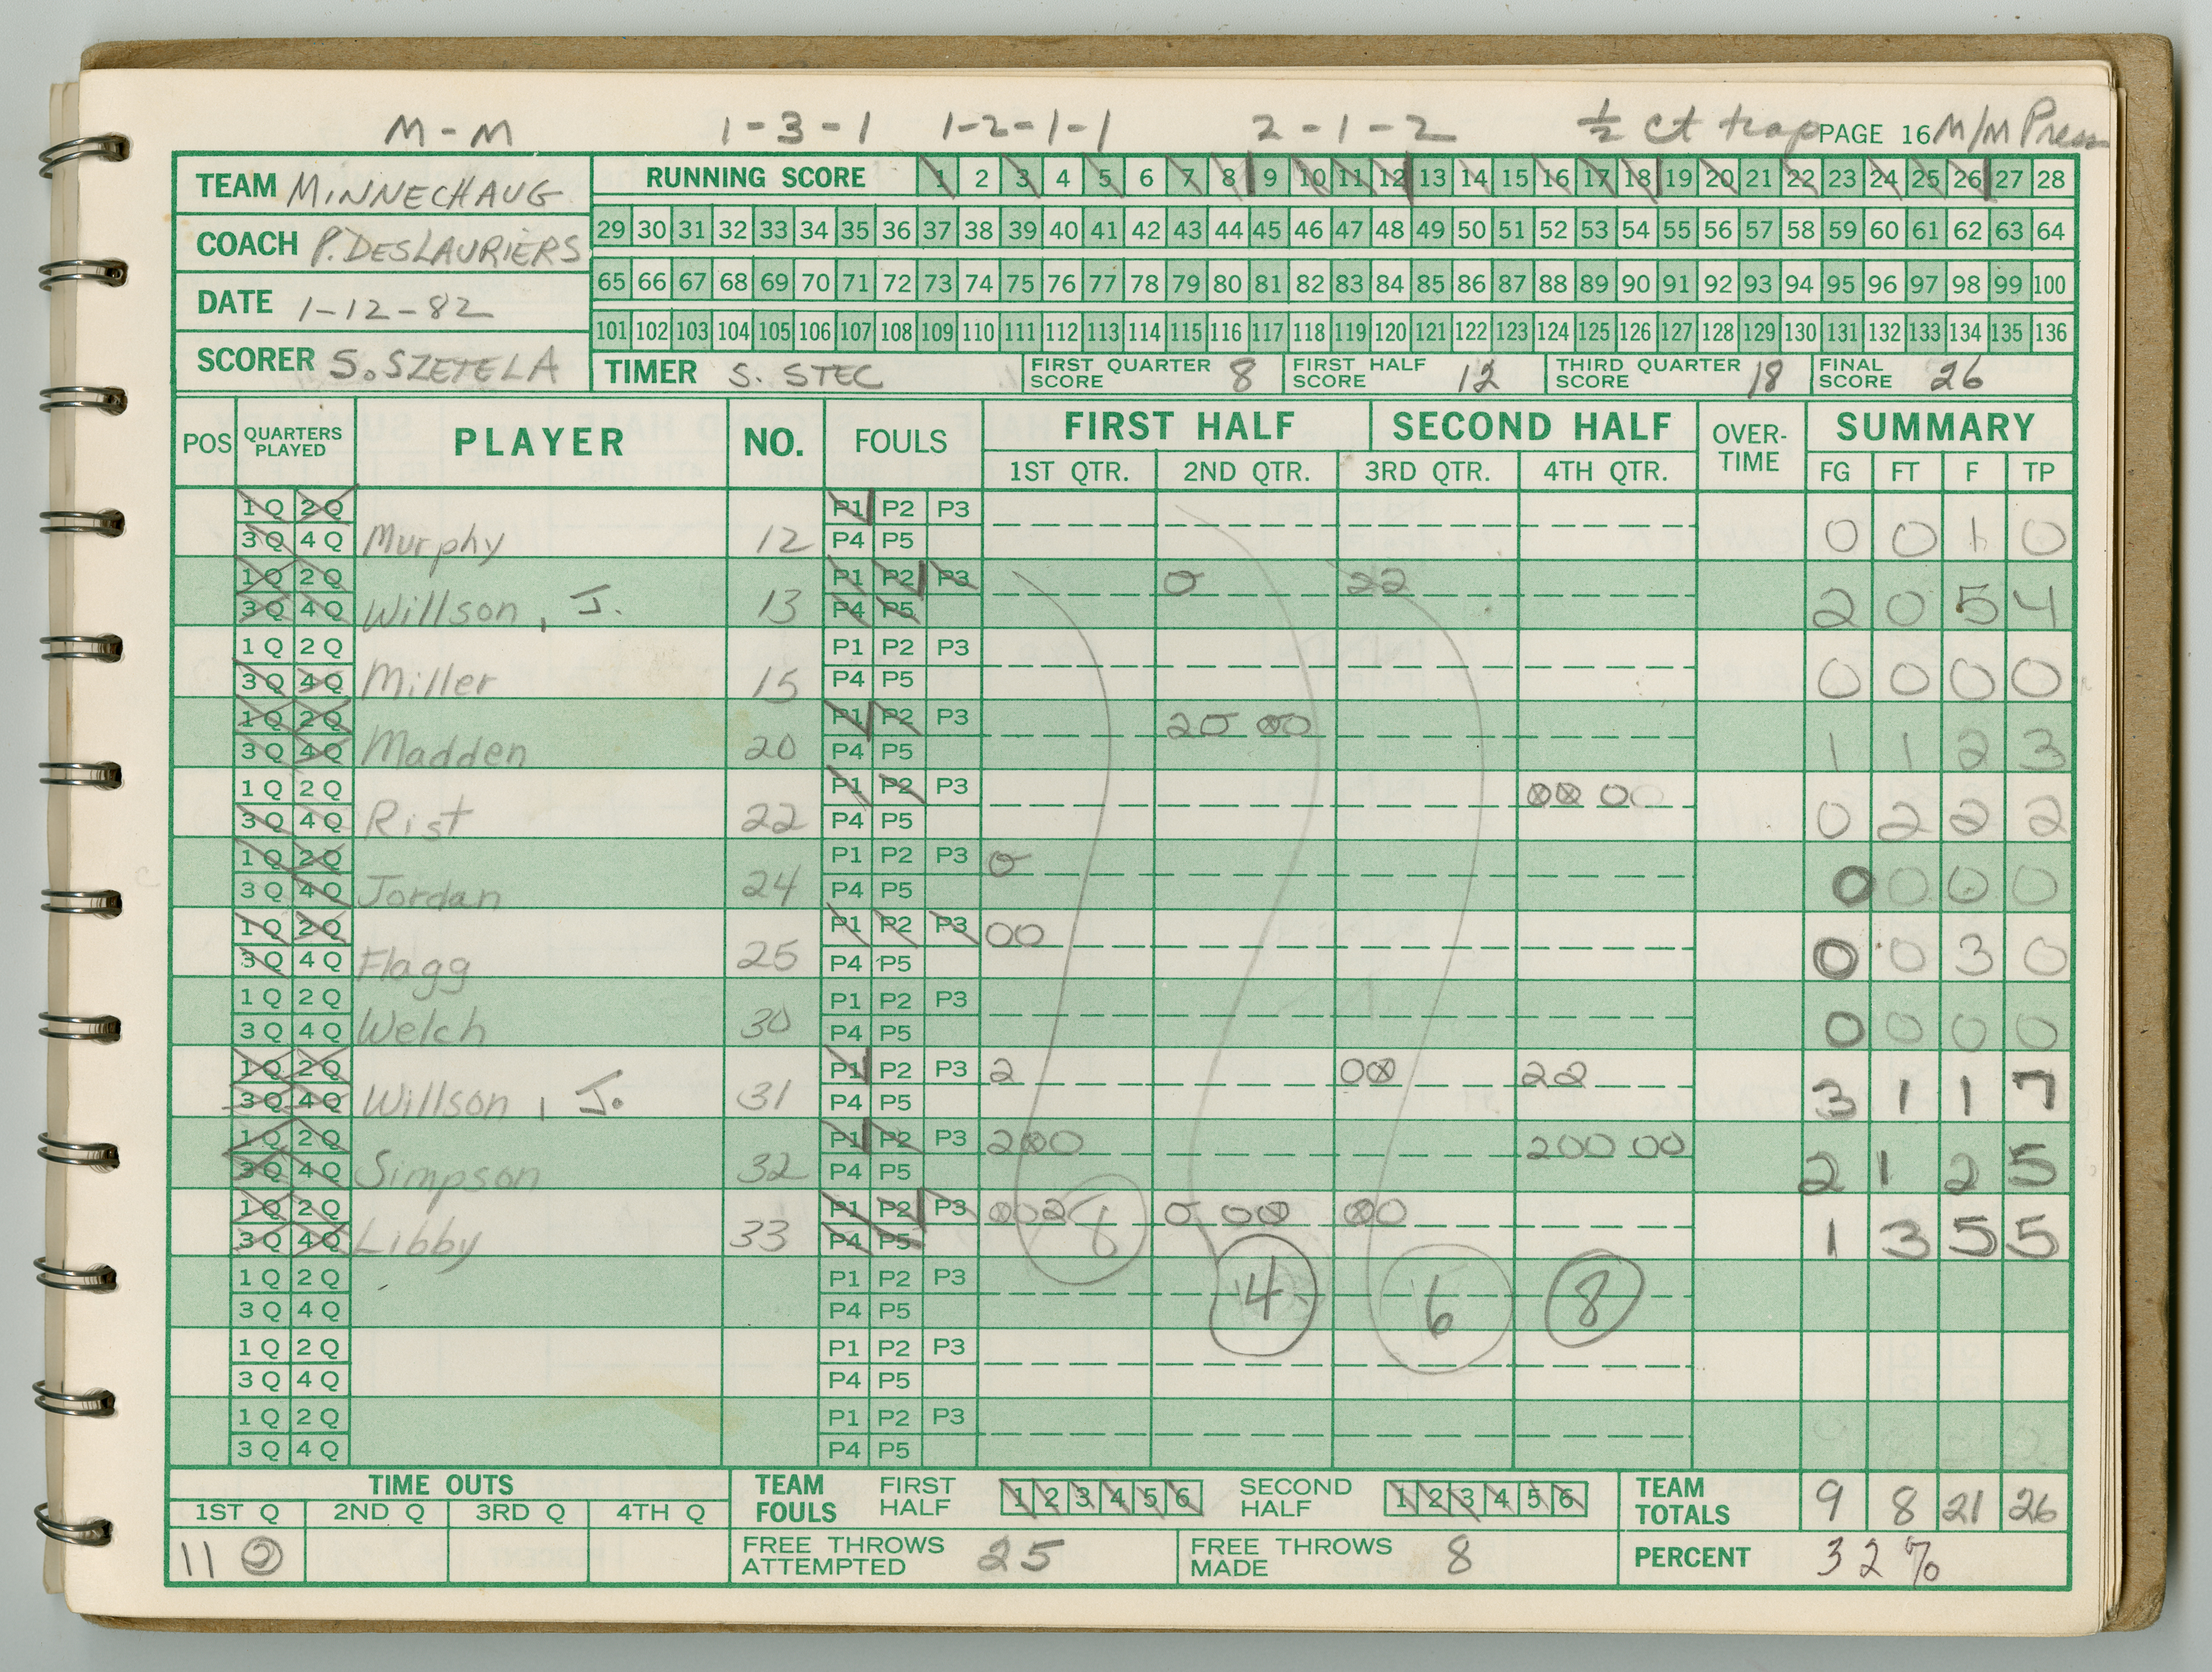 M-M 1-3-1 1-2-1-1 2-1-2 ½ ct trap PAGE 16 M/M Press
TEAM MINNECHAUG
COACH P. DESLAURIERS
DATE 1-12-82
SCORER S. SZETELA
RUNNING SCORE 1 2 3 4 5 6 7 8 9 10 11 12 13 14 15 16 17 18 19 20 21 22 23 24 25 26 27 28
29 30 31 32 33 34 35 36 37 38 39 40 41 42 43 44 45 46 47 48 49 50 51 52 53 54 55 56 57 58 59 60 61 62 63 64
65 66 67 68 69 70 71 72 73 74 75 76 77 78 79 80 81 82 83 84 85 86 87 88 89 90 91 92 93 94 95 96 97 98 99 100
101 102 103 104 105 106 107 108 109 110 111 112 113 114 115 116 117 118 119 120 121 122 123 124 125 126 127 128 129 130 131 132 133 134 135 136
TIMER S. STEC FIRST QUARTER SCORE 8 FIRST HALF SCORE 12 THIRD QUARTER SCORE 18 FINAL SCORE 26
POS QUARTERS PLAYED PLAYER NO. FOULS FIRST HALF SECOND HALF OVER-TIME SUMMARY
1ST QTR. 2ND QTR. 3RD QTR. 4TH QTR. FG FT F TP
1Q 2Q P1 P2 P3
3Q 4Q Murphy 12 P4 P5 0 0 1 0
1Q 2Q P1 P2 P3 0 22
3Q 4Q Willson, J. 13 P4 P5 2 0 5 4
1Q 2Q P1 P2 P3
3Q 4Q Miller 15 P4 P5 0 0 0 0
1Q 2Q P1 P2 P3 20 00
3Q 4Q Madden 20 P4 P5 1 1 2 3
1Q 2Q P1 P2 P3 00 00
3Q 4Q Rist 22 P4 P5 0 2 2 2
1Q 2Q P1 P2 P3 0
3Q 4Q Jordan 24 P4 P5 0 0 0 0
1Q 2Q P1 P2 P3 00
3Q 4Q Flagg 25 P4 P5 0 0 3 0
1Q 2Q P1 P2 P3
3Q 4Q Welch 30 P4 P5 0 0 0 0
1Q 2Q P1 P2 P3 2 00 22
3Q 4Q Willson, J. 31 P4 P5 3 1 1 7
1Q 2Q P1 P2 P3 200 200 00
3Q 4Q Simpson 32 P4 P5 2 1 2 5
1Q 2Q P1 P2 P3 002 8 0 00 00
3Q 4Q Libby 33 P4 P5 1 3 5 5
1Q 2Q P1 P2 P3 4 6 8
3Q 4Q P4 P5
1Q 2Q P1 P2 P3
3Q 4Q P4 P5
1Q 2Q P1 P2 P3
3Q 4Q P4 P5
TIME OUTS
1ST Q 2ND Q 3RD Q 4TH Q
11 2
TEAM FOULS FIRST HALF 1 2 3 4 5 6 SECOND HALF 1 2 3 4 5 6
FREE THROWS ATTEMPTED 25 FREE THROWS MADE 8
TEAM TOTALS 9 8 21 26
PERCENT 32%